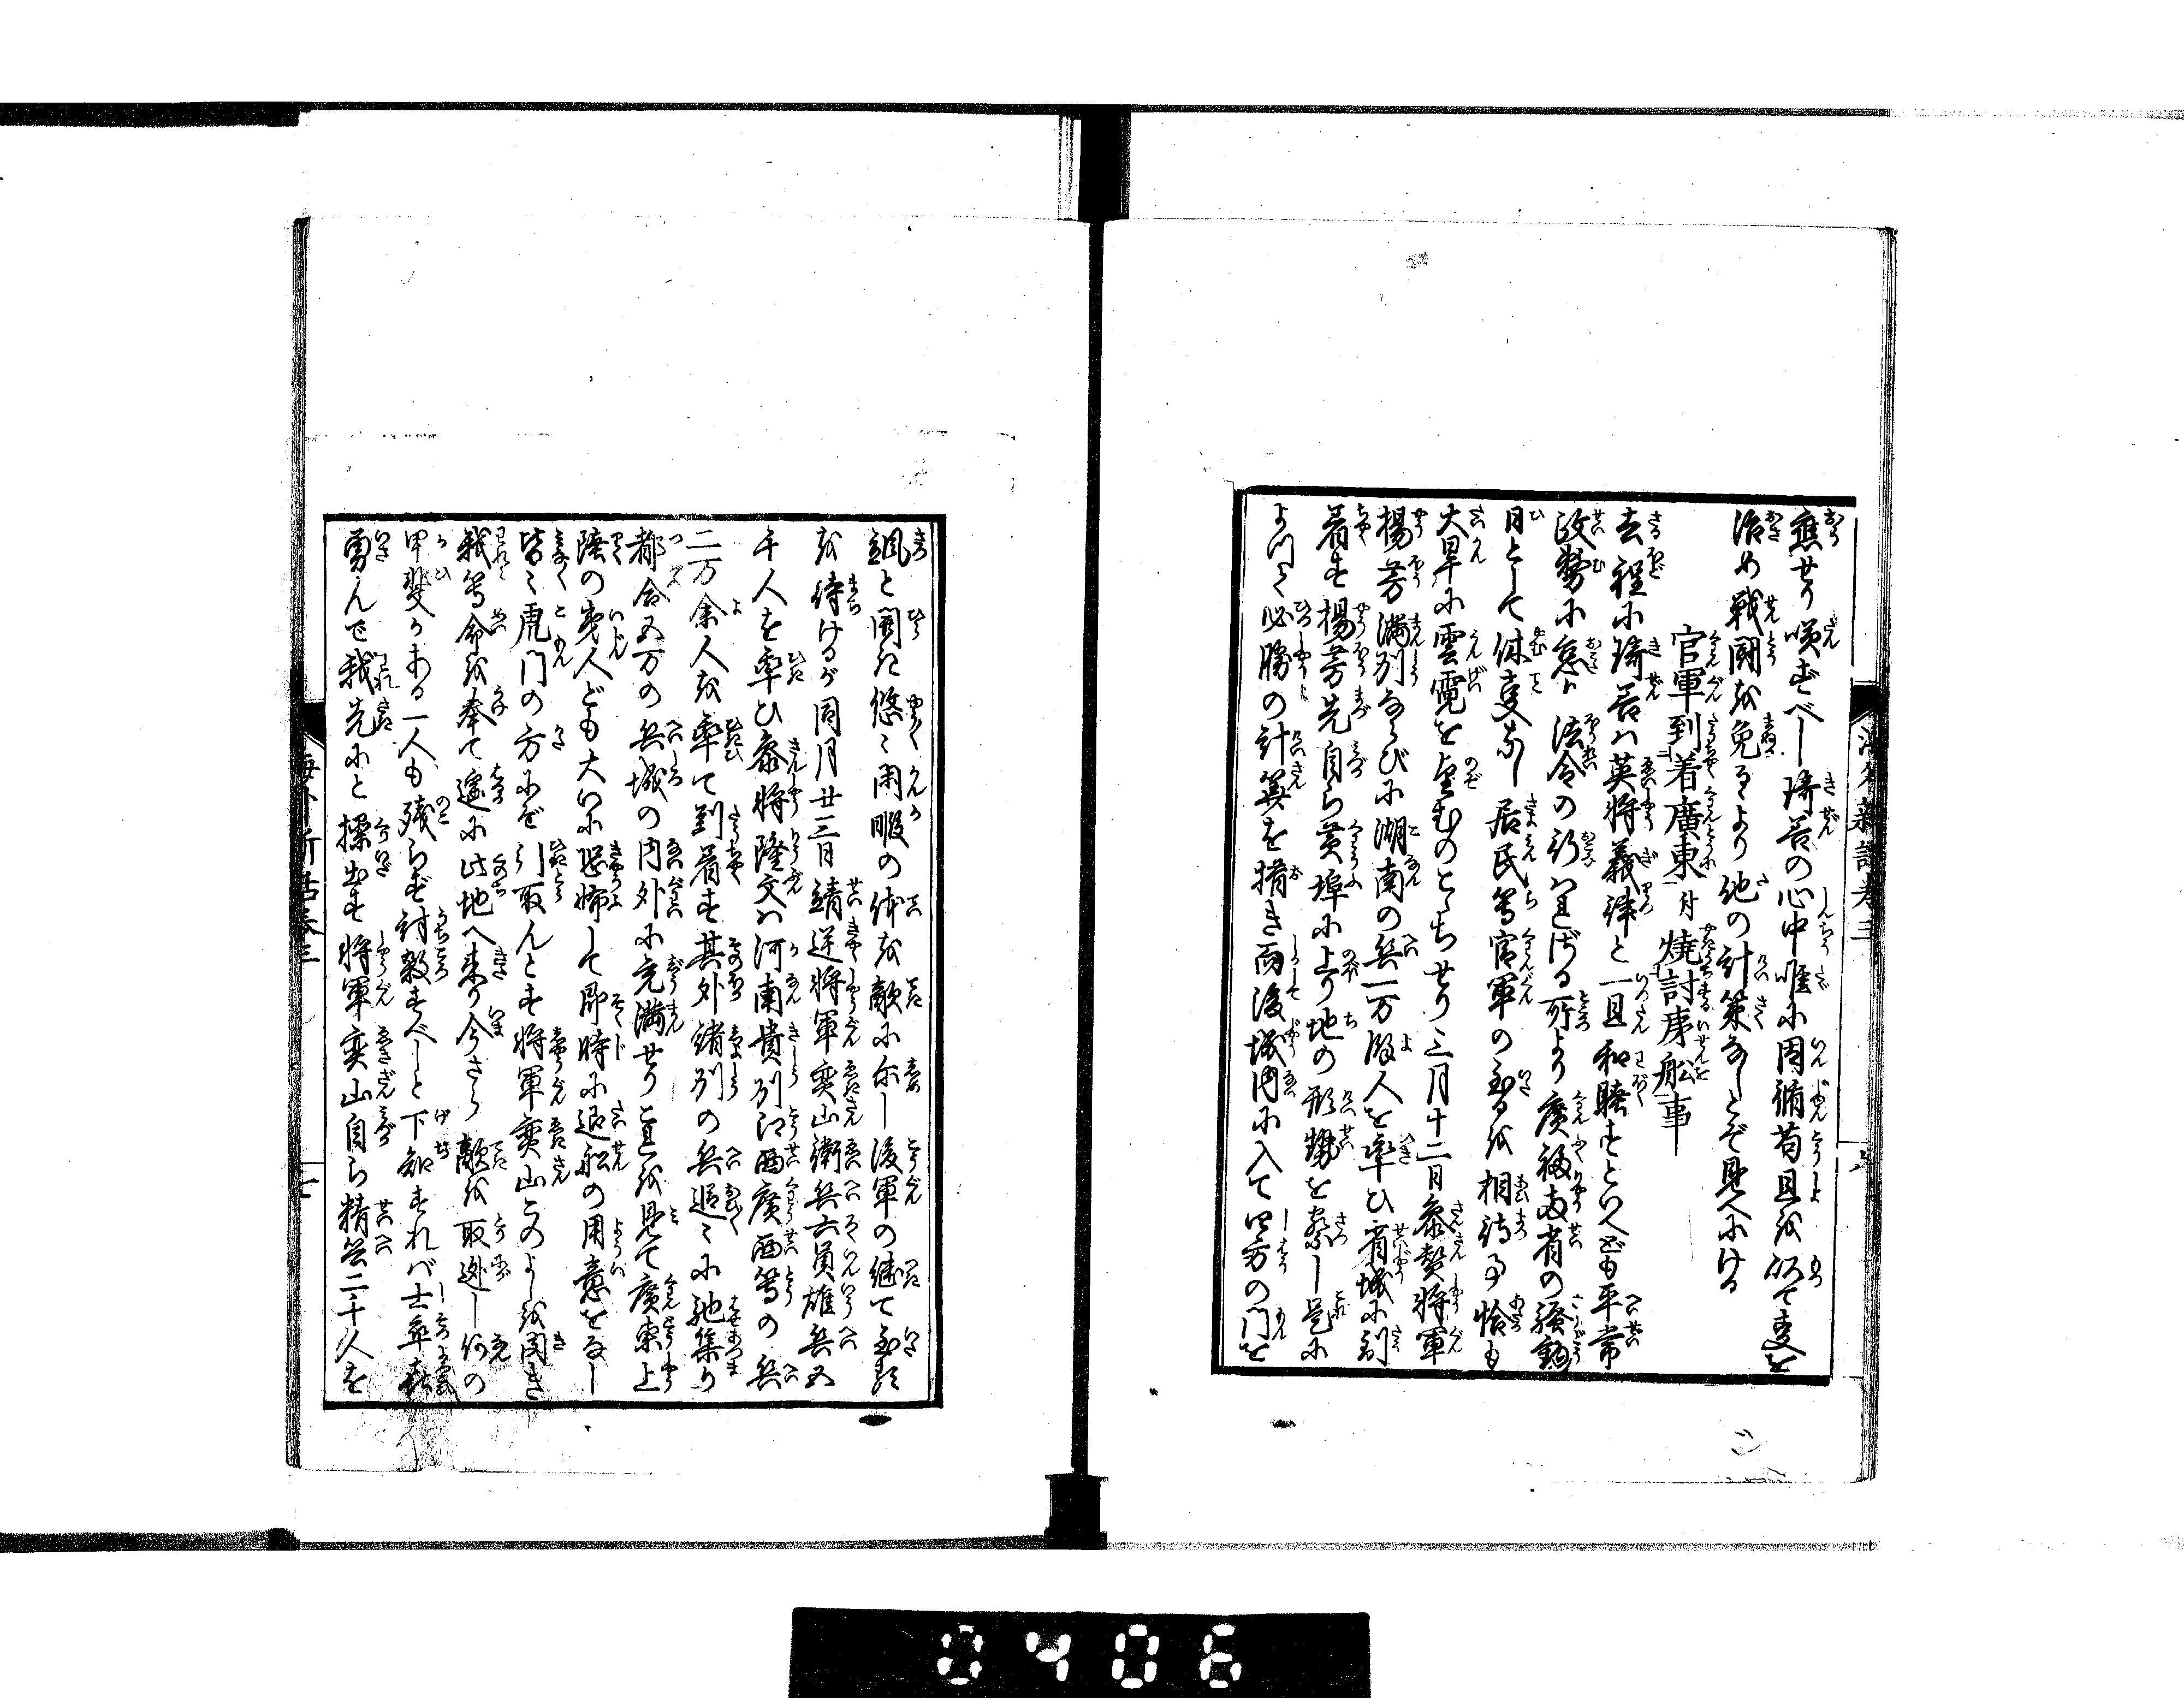 應せり嘆ずべし琦善の心中唯に因循苟且を以て事を
治め戦闘を免るより他の計策なしとぞ見へにける
官軍到着廣東付焼討夷船事
去程に琦善ハ英将義律と一旦和睦すといへども平常
政務に怠り法令の行はれざる所より廣福両省の騒動
日として休事なし居民等官軍の至るを相待事恰も
大旱に雲霓を望むのこゝちせり三月十二日参賛将軍
楊芳満州ならびに湖南の兵一万余人を率ひ省城に到
着す楊芳先自ら黄埠に上り地の形勢を察し是に
よつて必勝の計算を措き而後城内に入て四方の門を
颯と開き悠々閑暇の体を敵に示し後軍の継て至る
を待けるが同月廿三日靖逆将軍奕山衛兵六員雄兵五
千人を率ひ参将隆文ハ河南貴州江西廣西等の兵
二万余人を率て到着す其外諸州の兵追々に馳集り
都合五万の兵城の内外に充満せり是を見て廣東上
陸の夷人ども大いに恐怖して即時に退船の用意をなし
皆々虎門の方にぞ引取んとす将軍奕山このよしを聞き
我等命を奉て遥に此地へ来り今さら敵を取逃し何の
甲斐かある一人も残らず討殺すべしと下知すれバ士卒
勇んで我先にと操出す将軍奕山自ら精兵二千人を
海外新話巻三
海外新話巻三
七
0406